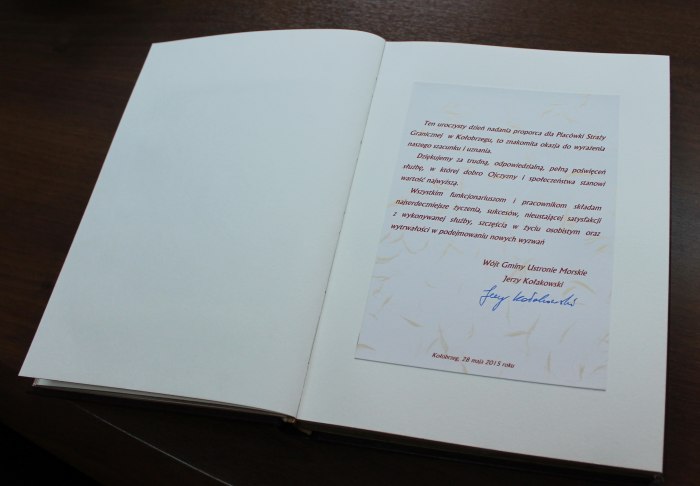 Ten uroczysty dzień nadania proporca dla Placówki Straży
Granicznej w Kołobrzegu, to znakomita okazja do wyrażenia
naszego szacunku i uznania.
Dziękujemy za trudną, odpowiedzialną, pełną poświęceń
służbę, w której dobro Ojczyzny i społeczeństwa stanowi
wartość najwyższą.
Wszystkim funkcjonariuszom i pracownikom składam
najserdeczniejsze życzenia, sukcesów, nieustającej satysfakcji
z wykonywanej służby, szczęścia w życiu osobistym oraz
wytrwałości w podejmowaniu nowych wyzwań
Wójt Gminy Ustronie Morskie
Jerzy Kołakowski
Jerzy Kołakowski
Kołobrzeg, 28 maja 2015 roku